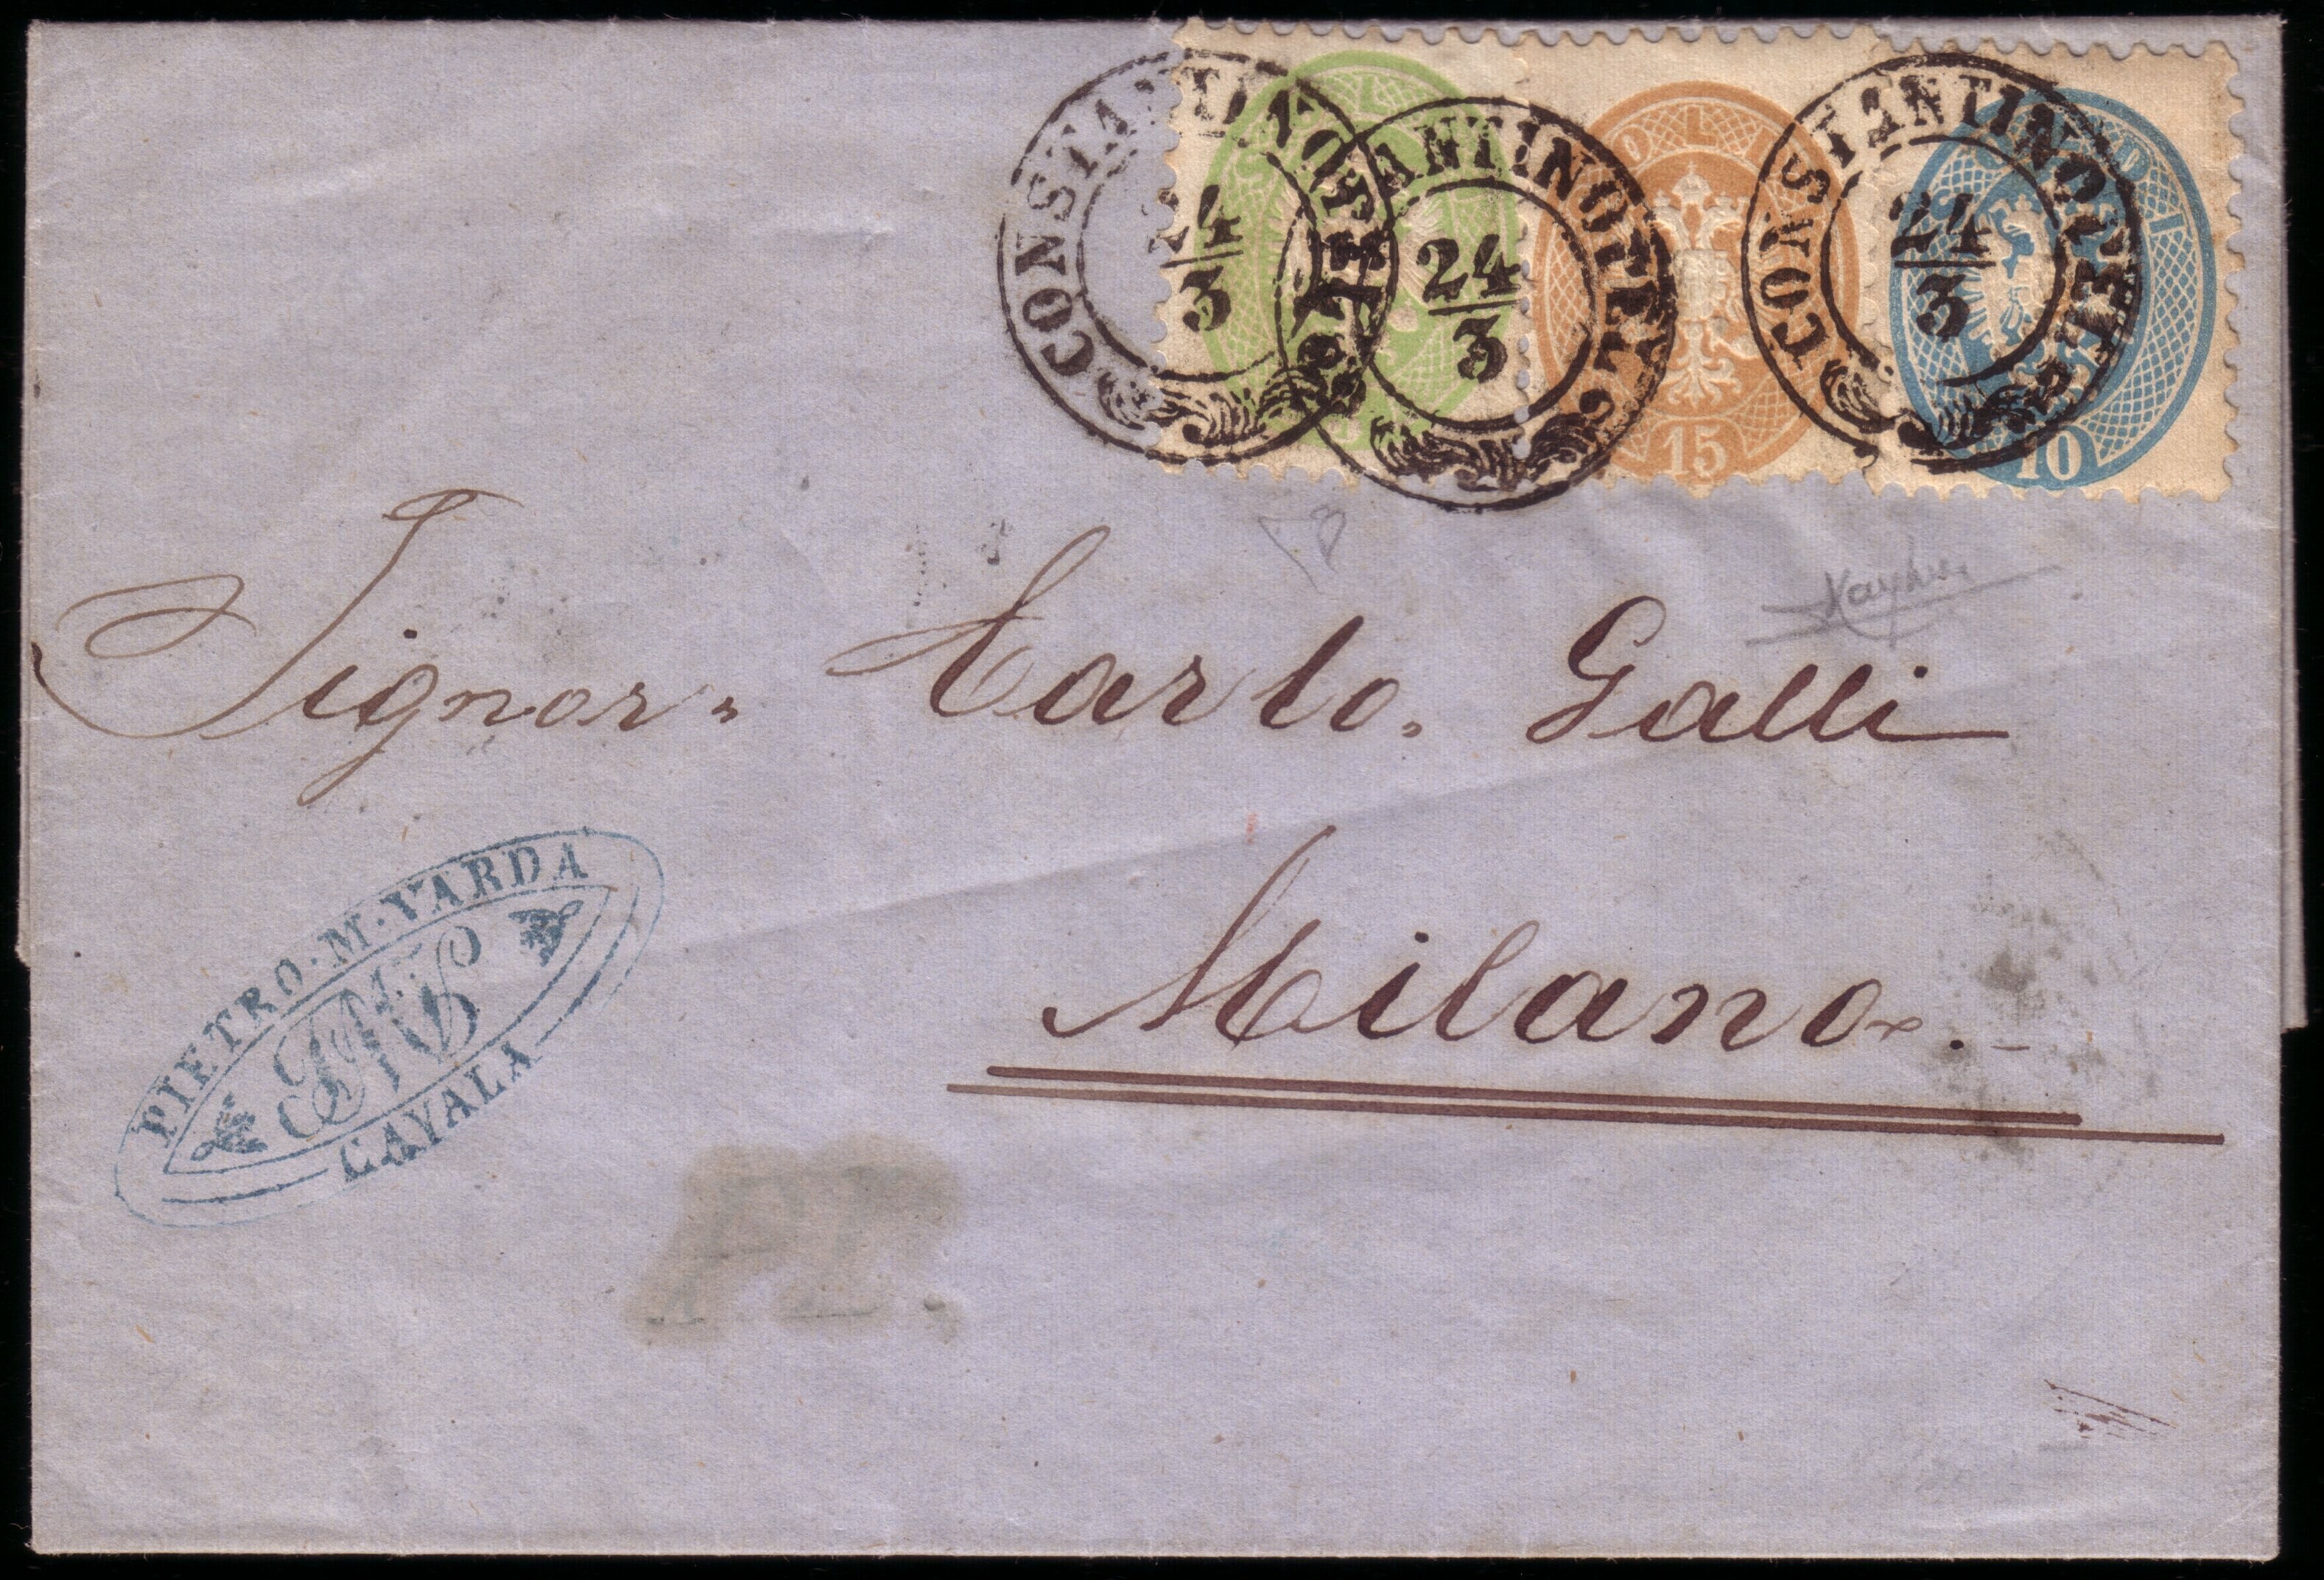 CONSTANTINOPEL
24
3
CONSTANTINOPEL
24
3
CONSTANTINOPEL
24
3
SOLDI
15
SOLDI
10
Signor Carlo Galli
Milano.
PIETRO·M·VARDA
PMV
CAVALA